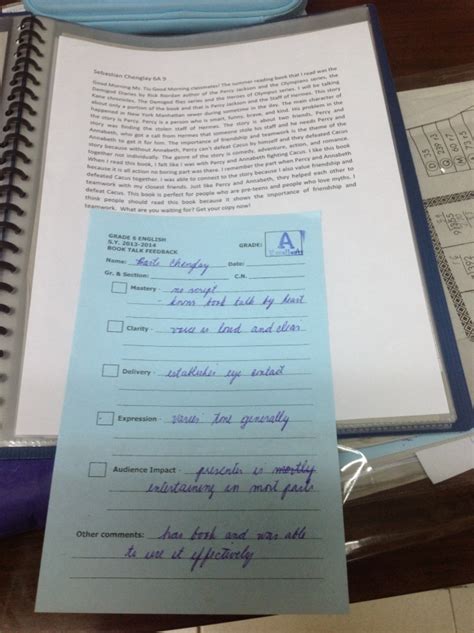 Sebastian Chenglay 6A 9
Good Morning Mr. Tiu Good Morning classmates! The summer reading book that I read was the
Demigod Diaries by Rick Riordan author of the Percy Jackson and the Olympians series, the
Kane chronicles, The Demigod files series and the Heroes of Olympus series. I will be talking
about only a portion of the book and that is Percy Jackson and the Staff of Hermes. This story
happened in New York Manhattan sewer during sometime in the Boy. The main character of
the story is Percy. Percy is a person who is smart, funny, brave, and kind. His problem in the
story was finding the stolen staff of Hermes. The story is about two friends; Percy and
Annabeth, who got a call from Hermes that someone stole his staff and he needs Percy and
Annabeth to get it for him. The importance of friendship and teamwork is the theme of the
story because without Annabeth, Percy can't defeat Cacus by himself and they defeated Cacus
together not individually. The genre of the story is comedy, adventure, action, and romance.
When I read this book, I felt like I was with Percy and Annabeth fighting Cacus. I like this book
because it is all action no boring part was there. I remember the part when Percy and Annabeth
defeated Cacus together. I was able to connect to the story because I also value friendship and
teamwork with my closest friends. Just like Percy and Annabeth, they helped each other to
defeat Cacus. This book is perfect for people who are pre-teens and people who love myths. I
think people should read this book because it shows the importance of friendship and
teamwork. What are you waiting for? Get your copy now!
GRADE 6 ENGLISH
S.Y. 2013-2014
BOOK TALK FEEDBACK
GRADE: A
Excellent
Name: Chenglay Date:
Gr. & Section: C.N.
Mastery - no script
- knows book talk by heart
Clarity - voice is loud and clear
Delivery - establishes eye contact
Expression - varies tone generally
Audience Impact - presenter is mostly
entertaining in most parts
Other comments: has book and was able
to use it effectively